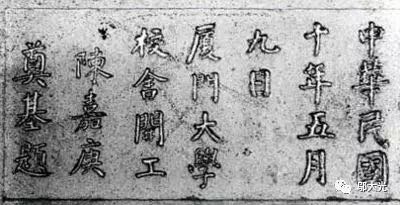 中華民國
十年五月
九日
厦門大學
校舍開工
陳嘉庚
奠基題
邬大光